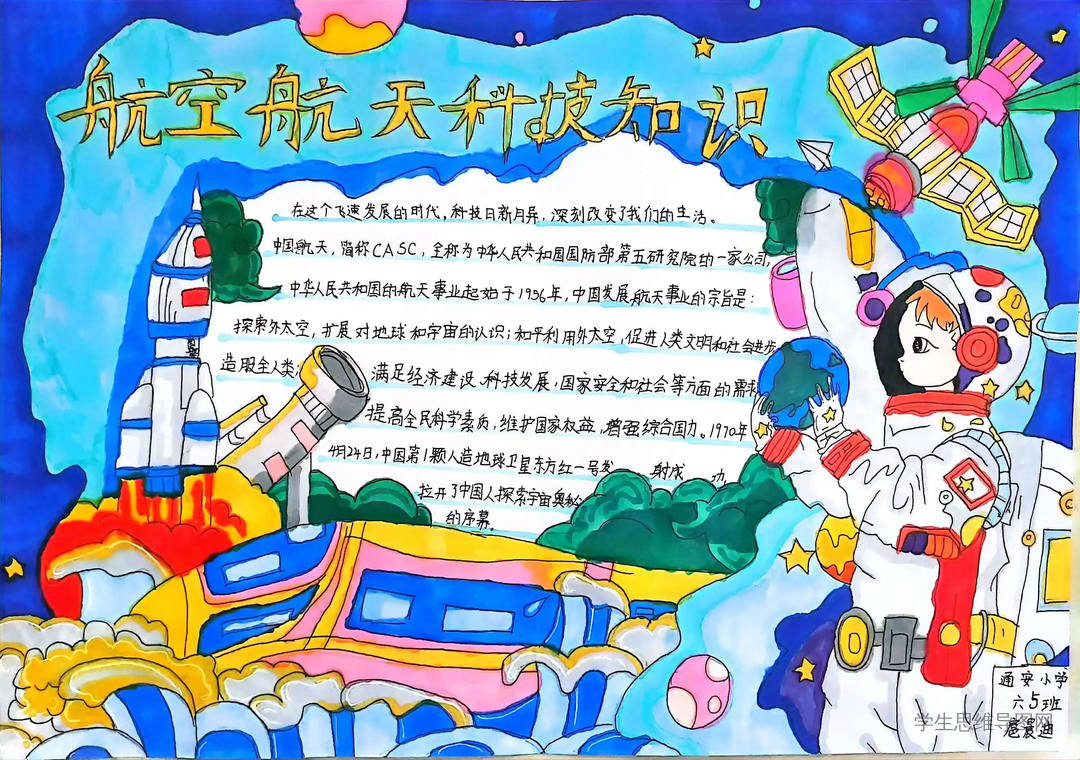 航空航天科技知识
在这个飞速发展的时代，科技日新月异，深刻改变了我们的生活。
中国航天，简称CASC，全称为中华人民共和国国防部第五研究院的一家公司，
中华人民共和国的航天事业起始于1956年，中国发展航天事业的宗旨是：
探索外太空，扩展对地球和宇宙的认识；和平利用外太空，促进人类文明和社会进步
造服全人类；
满足经济建设、科技发展，国家安全和社会等方面的需
提高全民科学素质，维护国家权益，增强综合国力。1970年
4月24日，中国第1颗人造地球卫星东方红一号发 射成 功，
拉开了中国人探索宇宙奥秘
的序幕。
通安小学
六5班
学生思维导图网